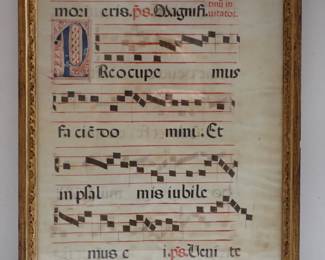 mori eris. ps. Magnifi.
uitator.
PReocupe mus
faciē do mini. Et
in psal mis iubile
mus e i. ps. Veni te